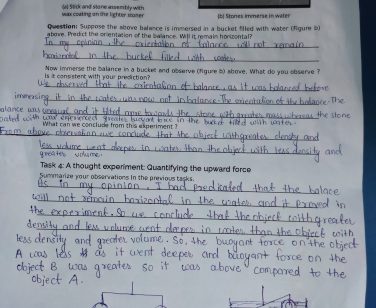 (a) Stick and stone assembly with
wax coating on the lighter stoner
(b) Stones immerse in water
Question: Suppose the above balance is immersed in a bucket filled with water (Figure b)
above. Predict the orientation of the balance. Will it remain horizontal?
In my opinion, the orientation of balance will not remain
horizontal in the bucket filled with water.
Now immerse the balance in a bucket and observe (figure b) above. What do you observe ?
Is it consistent with your prediction?
We observed that the orientation of balance, as it was balanced before
immersing it in the water, was now not in balance. The orientation of the balance. The
balance was unequal and it tilted more towards the stone with greater mass whereas the stone
coated with wax experienced greater buoyant force in the bucket filled with water.
What can we conclude from this experiment ?
From above observation we conclude that the object with greater density and
less volume went deeper in water than the object with less density and
greater volume.
Task 4: A thought experiment: Quantifying the upward force
Summarize your observations in the previous tasks.
As in my opinion I had predicated that the balace
will not remain horizontal in the water and it proved in
the experiment. So we conclude that the object with greater
density and less volume went deeper in water than the object with
less density and greater volume. So, the buoyant force on the object
A was less as it went deeper and buoyant force on the
object B was greater so it was above compared to the
object A.